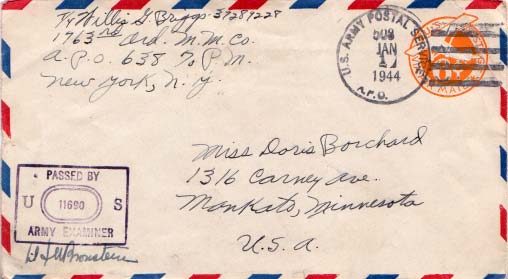 Pvt Willis G. Briggs 37287228
1763rd Ord. M.M. Co.
A.P.O. 638 % P.M.
New York, N.Y.
U.S. ARMY POSTAL SERVICE
JAN
1944
A.P.O.
MAIL
Miss Doris Borchard
1316 Carney Ave.
Mankato, Minnesota
U.S.A.
PASSED BY
U 11690 S
ARMY EXAMINER